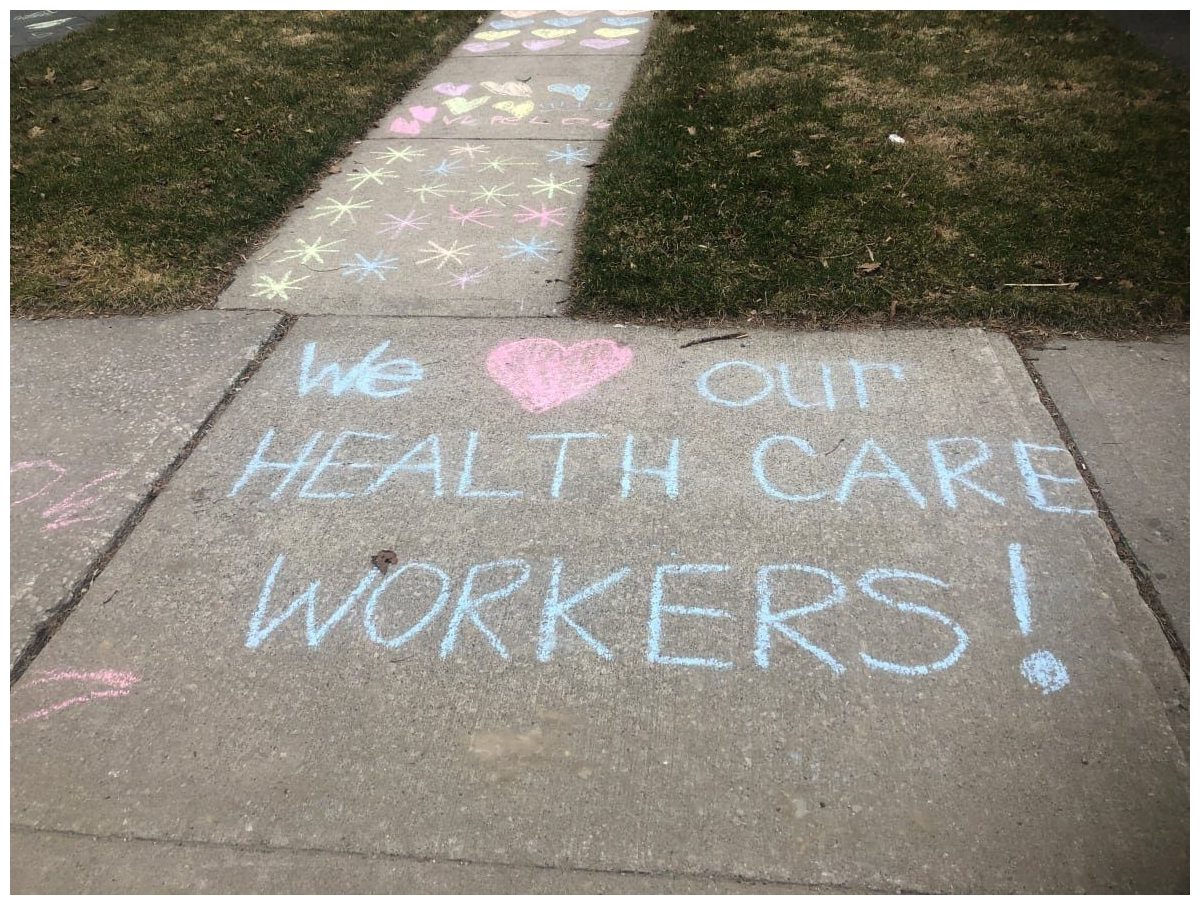 We ❤ our
HEALTH CARE
WORKERS!